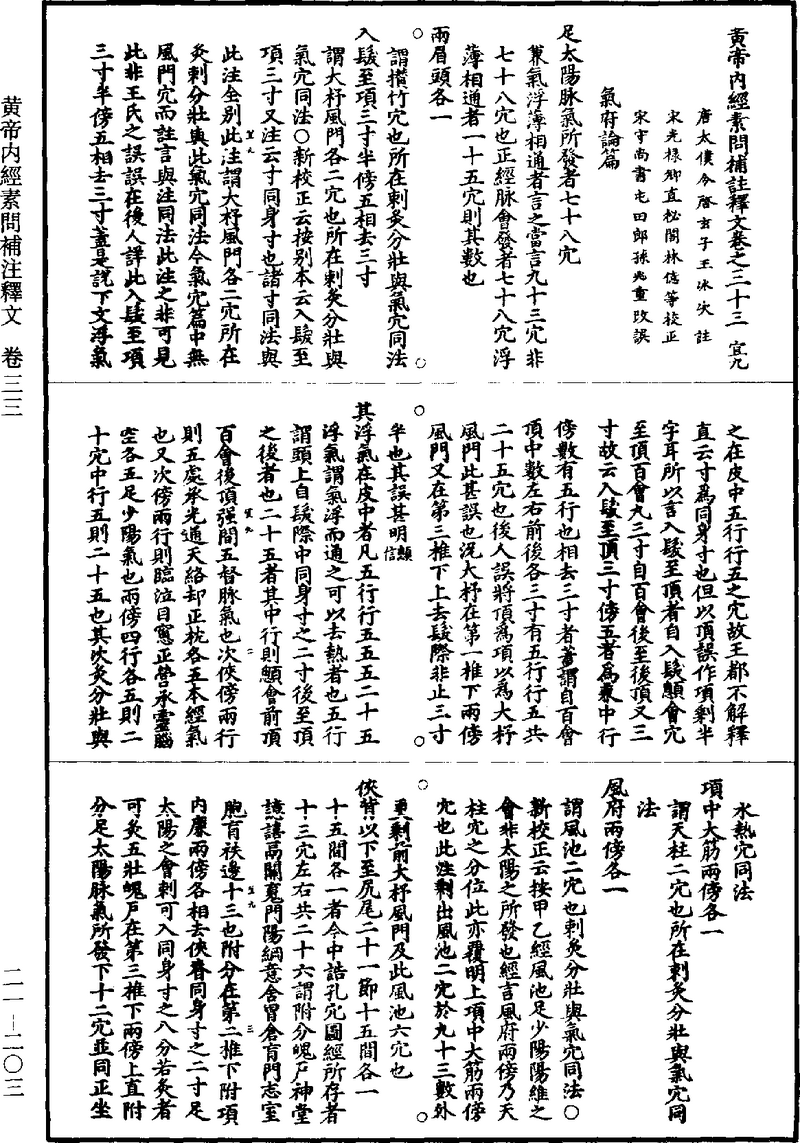 黃帝內經素問補註釋文卷之三十三 宜九
唐太僕令啓玄子王冰次註
宋光祿卿直秘閣林億等校正
宋守尚書屯田郎孫兆重改誤
氣府論篇
足太陽脉氣所發者七十八穴
兼氣浮薄相通者言之當言九十三穴非
七十八穴也正經脉會發者七十八穴浮
薄相通者一十五穴則其數也
兩眉頭各一
謂攢竹穴也所在刺灸分壯與氣穴同法
入髮至項三寸半傍五相去三寸
謂大杼風門各二穴也所在刺灸分壯與
氣穴同法○新校正云按別本云入髮至
項三寸又注云寸同身寸也諸寸同法與
此注全別此注謂大杼風門各二穴所在
灸刺分壯與此氣穴同法今氣穴篇中無
風門穴而註言與注同法此注之非可見
此非王氏之誤誤在後人詳此入髮至項
三寸半傍五相去三寸蓋是說下文浮氣
之在皮中五行行五之穴故王都不解釋
直云寸爲同身寸也但以頂誤作項剩半
字耳所以言入髮至頂者自入髮顖會穴
至頂百會九三寸自百會後至後頂又三
寸故云入髮至頂三寸傍五者爲兼中行
傍數有五行也相去三寸者蓋謂自百會
頂中數左右前後各三寸有五行行五共
二十五穴也後人誤將頂爲項以爲大杼
風門此甚誤也況大杼在第一椎下兩傍
風門又在第二椎下上去髮際非止三寸
半也其誤甚明顖信
其浮氣在皮中者凡五行行五五五二十五
浮氣謂氣浮而通之可以去熱者也五行
謂頭上自髮際中同身寸之二寸後至頂
之後者也二十五者其中行則顖會前頂
百會後頂强間五督脉氣也次俠傍兩行
則五處承光通天絡却玉枕各五本經氣
也又次傍兩行則臨泣目窻正營承靈腦
空各五足少陽氣也兩傍四行各五則二
十穴中行五則二十五也其次灸分壯與
水熱穴同法
項中大筋兩傍各一
謂天柱二穴也所在刺灸分壯與氣穴同
法
風府兩傍各一
謂風池二穴也刺灸分壯與氣穴同法○
新校正云按甲乙經風池足少陽陽維之
會非太陽之所發也經言風府兩傍乃天
柱穴之分位此亦覆明上項中大筋兩傍
穴也此注剩出風池二穴於九十三數外
更剩前大杼風門及此風池六穴也
俠背以下至尻尾二十一節十五間各一
十五間各一者今中誥孔穴圖經所存者
十三穴左右共二十六謂附分魄戶神堂
譩譆鬲關䰟門陽綱意舍胃倉肓門志室
胞肓秩邊十三也附分在第二椎下附項
內廉兩傍各相去俠脊同身寸之二寸足
太陽之會刺可入同身寸之八分若灸者
可灸五壯魄戶在第三椎下兩傍上直附
分足太陽脉氣所發下十二穴並同正坐
黄帝内經素問補注釋文 卷三三
二一—二〇三